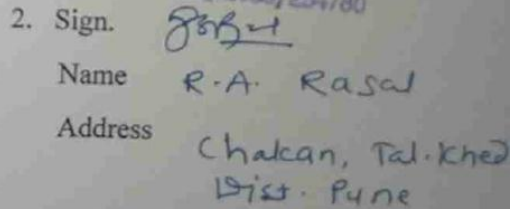 2. Sign.
Name R.A. Rasal
Address
Chakan, Tal. Khed
Dist. Pune